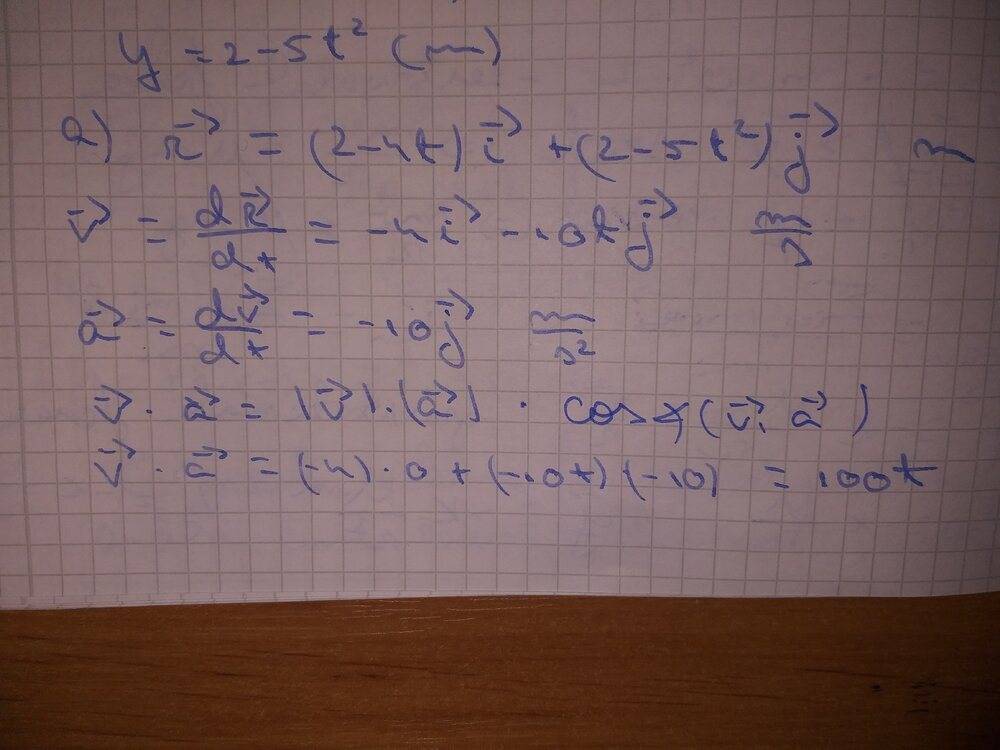 y = 2 - 5t² (m)
a) r⃗ = (2-4t) i⃗ + (2-5t²) j⃗ m
v⃗ = dr⃗/dt = -4 i⃗ - 10t j⃗ m/s
a⃗ = dv⃗/dt = -10 j⃗ m/s²
v⃗ · a⃗ = |v⃗| · |a⃗| · cos∢(v⃗; a⃗)
v⃗ · a⃗ = (-4) · 0 + (-10t)(-10) = 100t